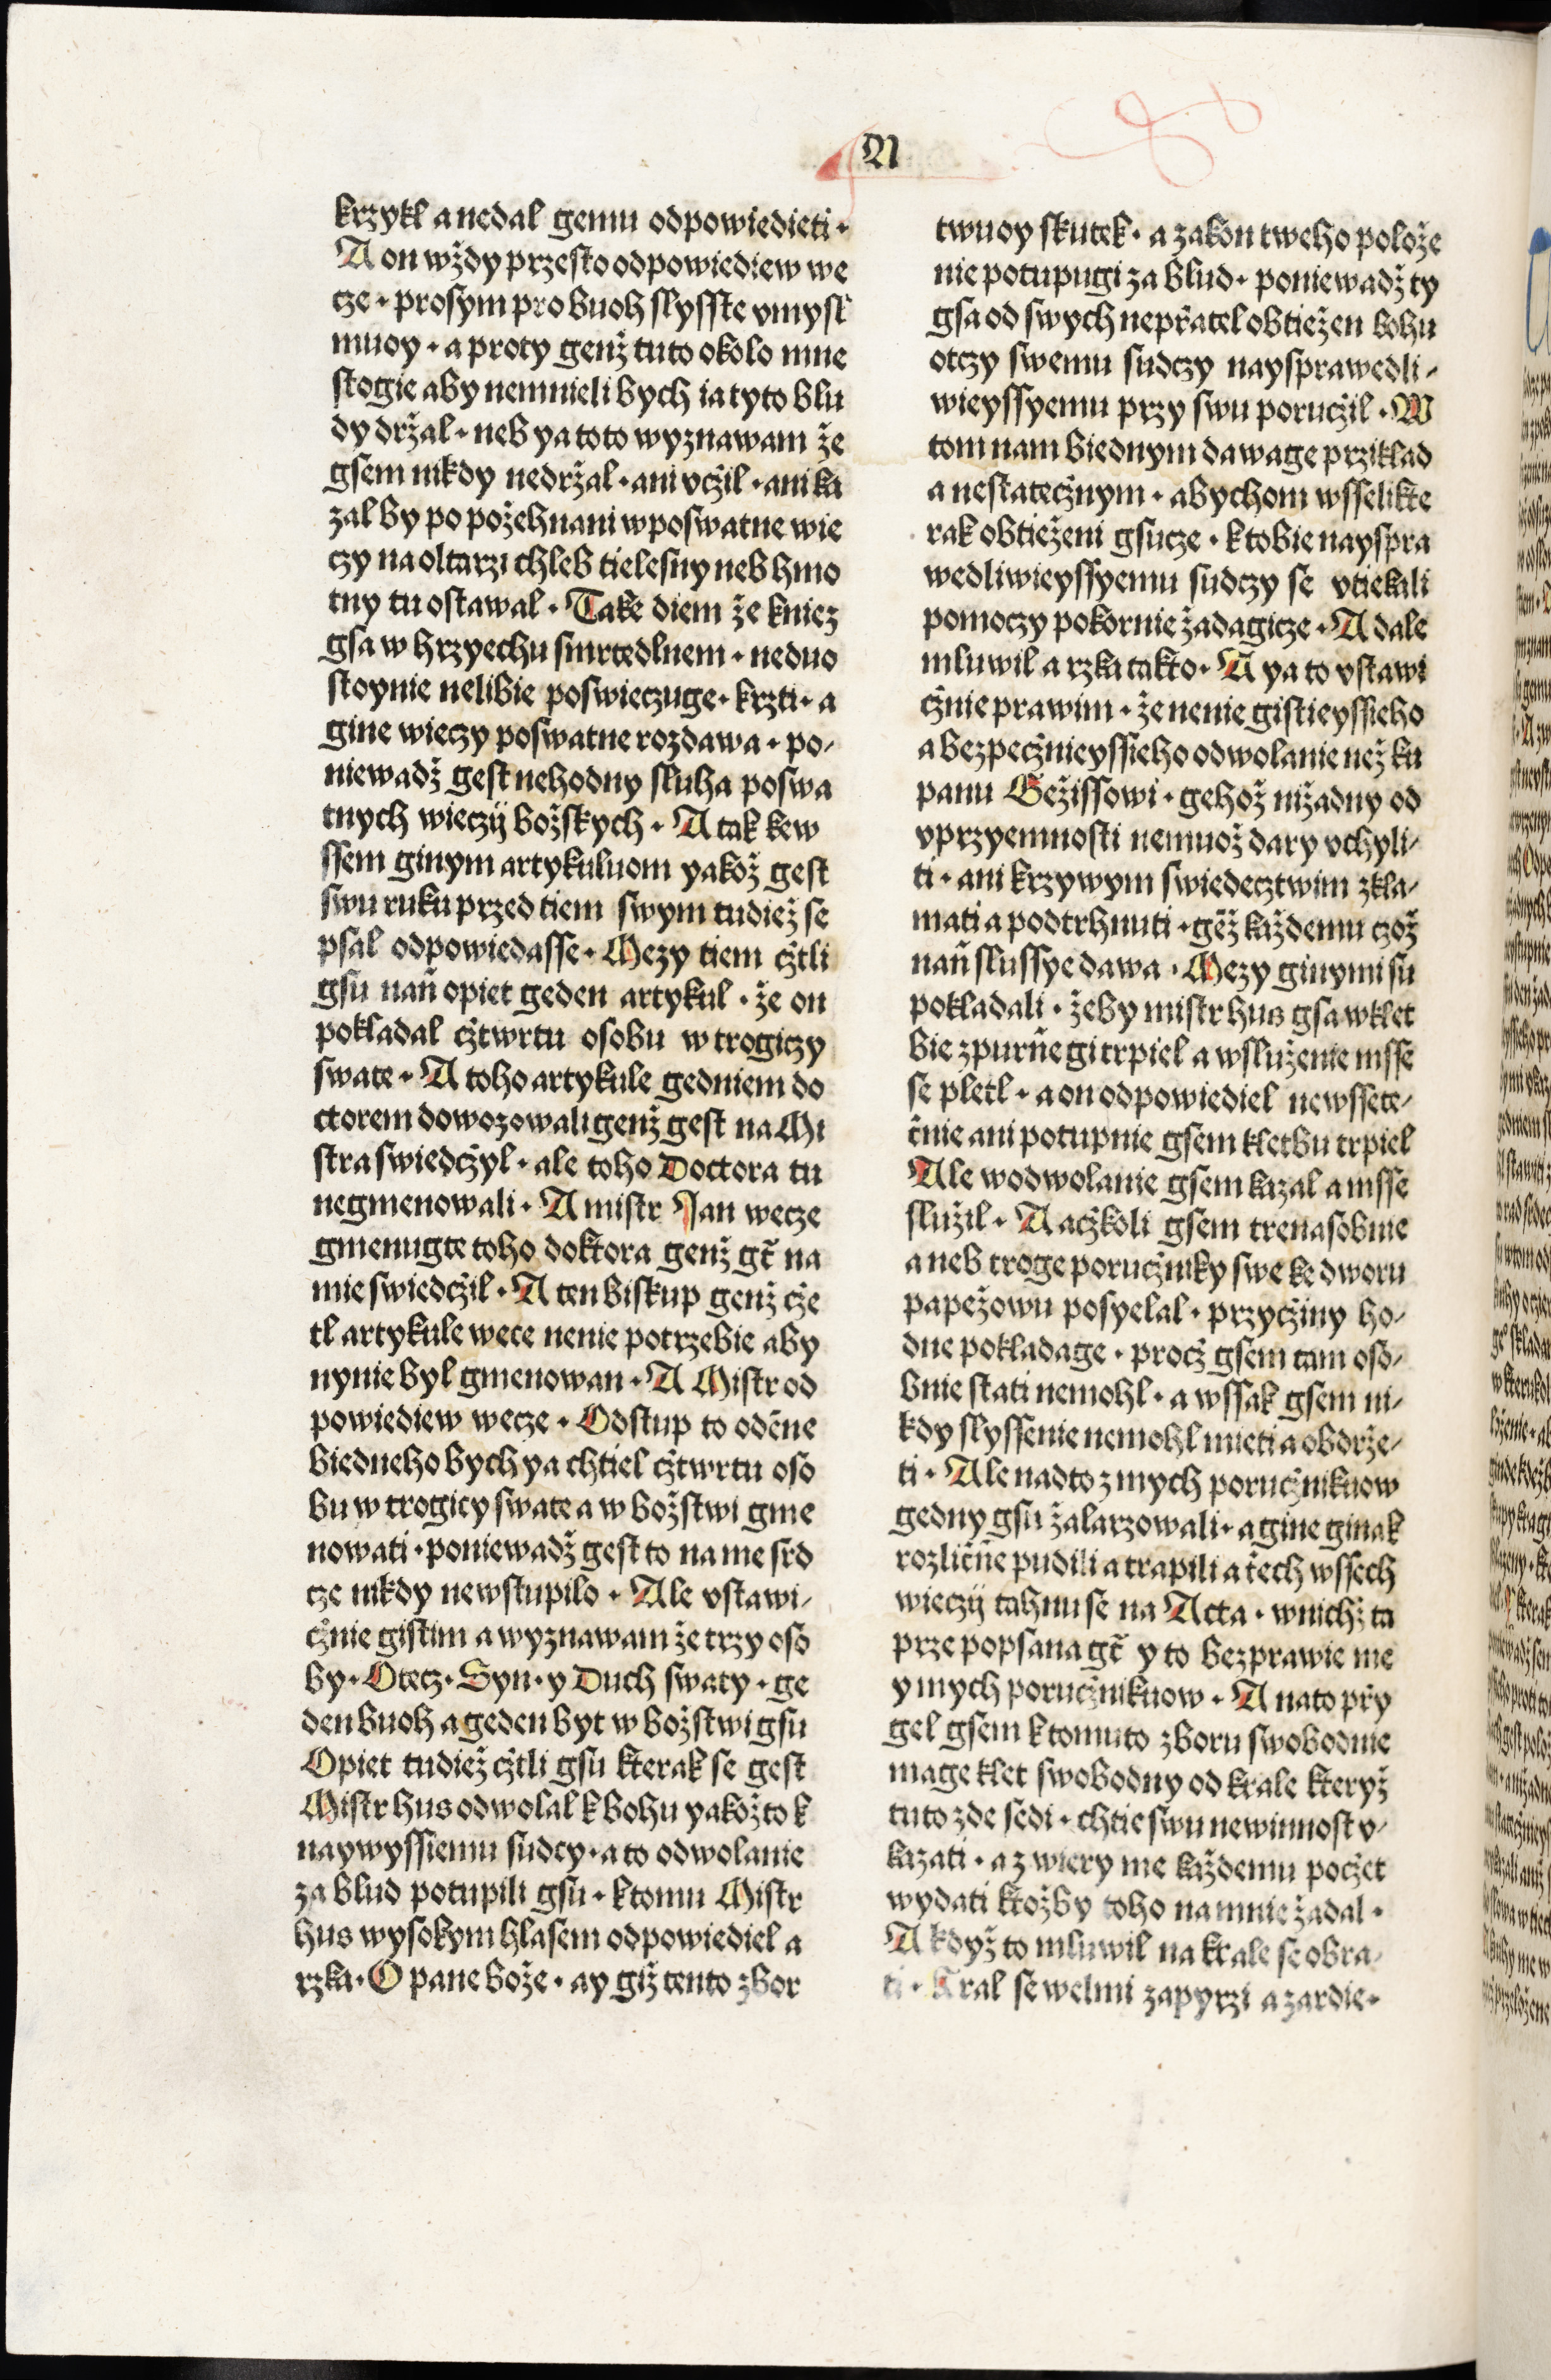 N
krzykl a nedal gemu odpowiedieti ·
A on wždy przesto odpowiediew we
cze · prosym pro buoh slysste vmysl
muoy · a proty genž tuto okolo mne
stogie aby nemnieli bych ia tyto blu
dy držal · neb ya toto wyznawam že
gsem nikdy nedržal · ani včžil · ani ka
zal by po požehnani w poswatne wie
czy na oltarzi chleb tielesny neb hmo
tny tu ostawal · Take diem že kniez
gsa w hrzyechu smrtedlnem · neduo
stoynie nelibie poswieczuge · krzti · a
gine wieczy poswatne rozdawa · po-
niewadž gest nehodny sluha poswa
tnych wieczij božskych · A tak kew
ssem ginym artykuluom yakož gest
swu ruku przed tiem swym tudiež se
psal odpowiedasse · Mezy tiem čztli
gsu nan̄ opiet geden artykul · že on
pokladal čztwrtu osobu w trogiczy
swate · A toho artykule gedniem do
ctorem dowozowali genž gest na Mi
stra swiedčžyl · ale toho Doctora tu
negmenowali · A mistr Jan wecze
gmenugte toho doktora genž gt̄ na
mie swiedčžil · A ten biskup genž čže
tl artykule wece nenie potrzebie aby
nynie byl gmenowan · A Mistr od
powiediew wecze · Odstup to odēne
biedneho bych ya chtiel čztwrtu oso
bu w trogicy swate a w božstwi gme
nowati · poniewadž gest to na me srd
cze nikdy newstupilo · Ale vstawi-
čžnie gistim a wyznawam že trzy oso
by · Otecz · Syn · y Duch swaty · ge
den buoh a geden byt w božstwi gsu
Opiet tudiež čztli gsu kterak se gest
Mistr hus odwolal k bohu yakožto k
naywyssiemu sudcy · a to odwolanie
za blud potupili gsu · k tomu Mistr
hus wysokym hlasem odpowiediel a
rzka · O pane bože · ay giž tento zbor
twuoy skutek · a zakon tweho polože
nie potupugi za blud · poniewadž ty
gsa od swych nepřatel obtiežen bohu
otczy swemu sudczy naysprawedli-
wieyssyemu przy swu poručžil · W
tom nam biednym dawage przíklad
a nestatečžnym · abychom wsselikte
rak obtieženi gsucze · k tobie nayspra
wedliwieyssyemu sudczy se vtiekali
pomoczy pokornie žadagicze · A dale
mluwil a rzka takto · A ya to vstawi
čžnie prawim · že nenie gistieyssieho
a bezpečžnieyssieho odwolanie než ku
panu Gežissowi · gehož nižadny od
vprzyemnosti nemuož dary vchyli-
ti · ani krzywym swiedecztwim zkla-
mati a podtrhnuti · gēž každemu czož
nan̄ slussye dawa · Mezy ginymi su
pokladali · žeby mistr hus gsa w klet
bie zpurn̄e gi trpiel a w služenie msse
se pletl · a on odpowiediel newssete-
čnie ani potupnie gsem kletbu trpiel
Ale w odwolanie gsem kazal a msse
služil · A ačžkoli gsem trenasobnie
a neb troge poručžniky swe ke dworu
papežowu posyelal · przyčžiny ho-
dne pokladage · pročž gsem tam oso-
bnie stati nemohl · a wssak gsem ni-
kdy slyssenie nemohl mieti a obdrže-
ti · Ale nadto z mych poručžnikuow
gedny gsu žalarzowali · a gine ginak
rozličn̄e pudili a trapili a těch wssech
wieczij tahnu se na Acta · w nichž ta
prze popsana gt̄ y to bezprawie me
y mych poručžnikuow · A nato přy
gel gsem k tomuto zboru swobodnie
mage klet swobodny od krale kteryž
tuto zde sedi · chtie swu newinnost v-
kazati · a z wiery me každemu počžet
wydati ktožby toho na mnie žadal ·
A když to mluwil na krale se obra-
ti · Kral se welmi zapyrzi a zardie ·